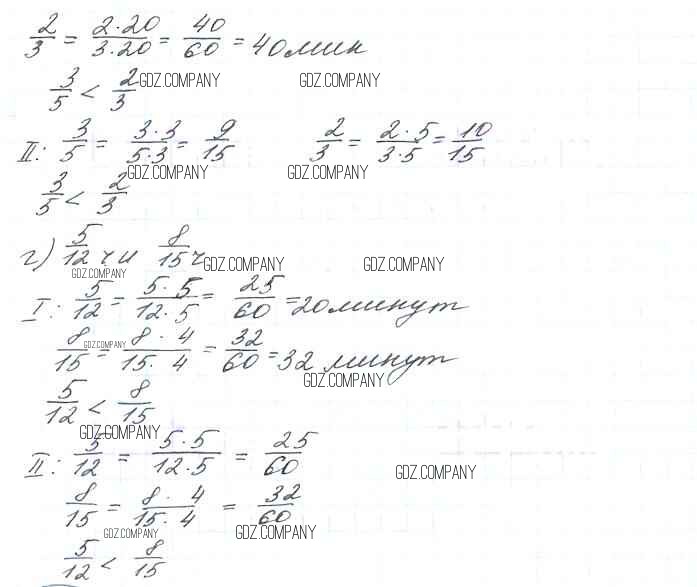 2/3 = 2·20/3·20 = 40/60 = 40 мин
3/5 < 2/3
GDZ.COMPANY GDZ.COMPANY
II: 3/5 = 3·3/5·3 = 9/15 2/3 = 2·5/3·5 = 10/15
GDZ.COMPANY GDZ.COMPANY
3/5 < 2/3
г) 5/12 ч и 8/15 ч
GDZ.COMPANY GDZ.COMPANY
GDZ.COMPANY
I: 5/12 = 5·5/12·5 = 25/60 = 20 минут
8/15 = 8·4/15·4 = 32/60 = 32 минут
GDZ.COMPANY
GDZ.COMPANY
5/12 < 8/15
GDZ.COMPANY
II: 5/12 = 5·5/12·5 = 25/60
GDZ.COMPANY
8/15 = 8·4/15·4 = 32/60
GDZ.COMPANY GDZ.COMPANY
5/12 < 8/15